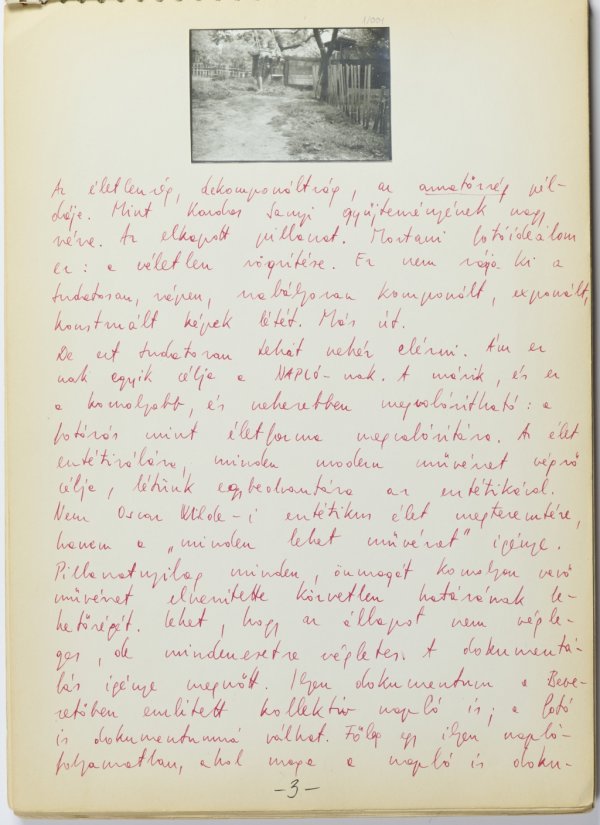 1/001
Az életlenség, dekomponáltság, az amatőrség pél-
dája. Mint Kardos Sanyi gyűjteményének nagy
része. Az elkapott pillanat. Mostani fotóideálom
ez: a véletlen rögzítése. Ez nem zárja ki a
tudatosan, szépen, szabályosan komponált, exponált,
konstruált képek létét. Más út.
De ezt tudatosan tehát nehéz elérni. Ám ez
csak egyik célja a NAPLÓ-nak. A másik, és ez
a komolyabb, és nehezebben megvalósítható: a
fotózás mint életforma megvalósítása. Az élet
esztétizálása, minden modern művészet végső
célja, létünk egybeolvasztása az esztétikával.
Nem Oscar Wilde-i esztétikus élet megteremtése,
hanem a „minden lehet művészet" igénye.
Pillanatnyilag minden, önmagát komolyan vevő
művészet elveszítette közvetlen hatásának le-
hetőségét. Lehet, hogy az állapot nem végle-
ges, de mindenesetre végletes. A dokumentá-
lás igénye megnőtt. Ilyen dokumentum a Beve-
zetőben említett kollektív napló is; a fotó
is dokumentummá válhat. Főleg egy ilyen napló-
folyamatban, ahol maga a napló is doku-
-3-